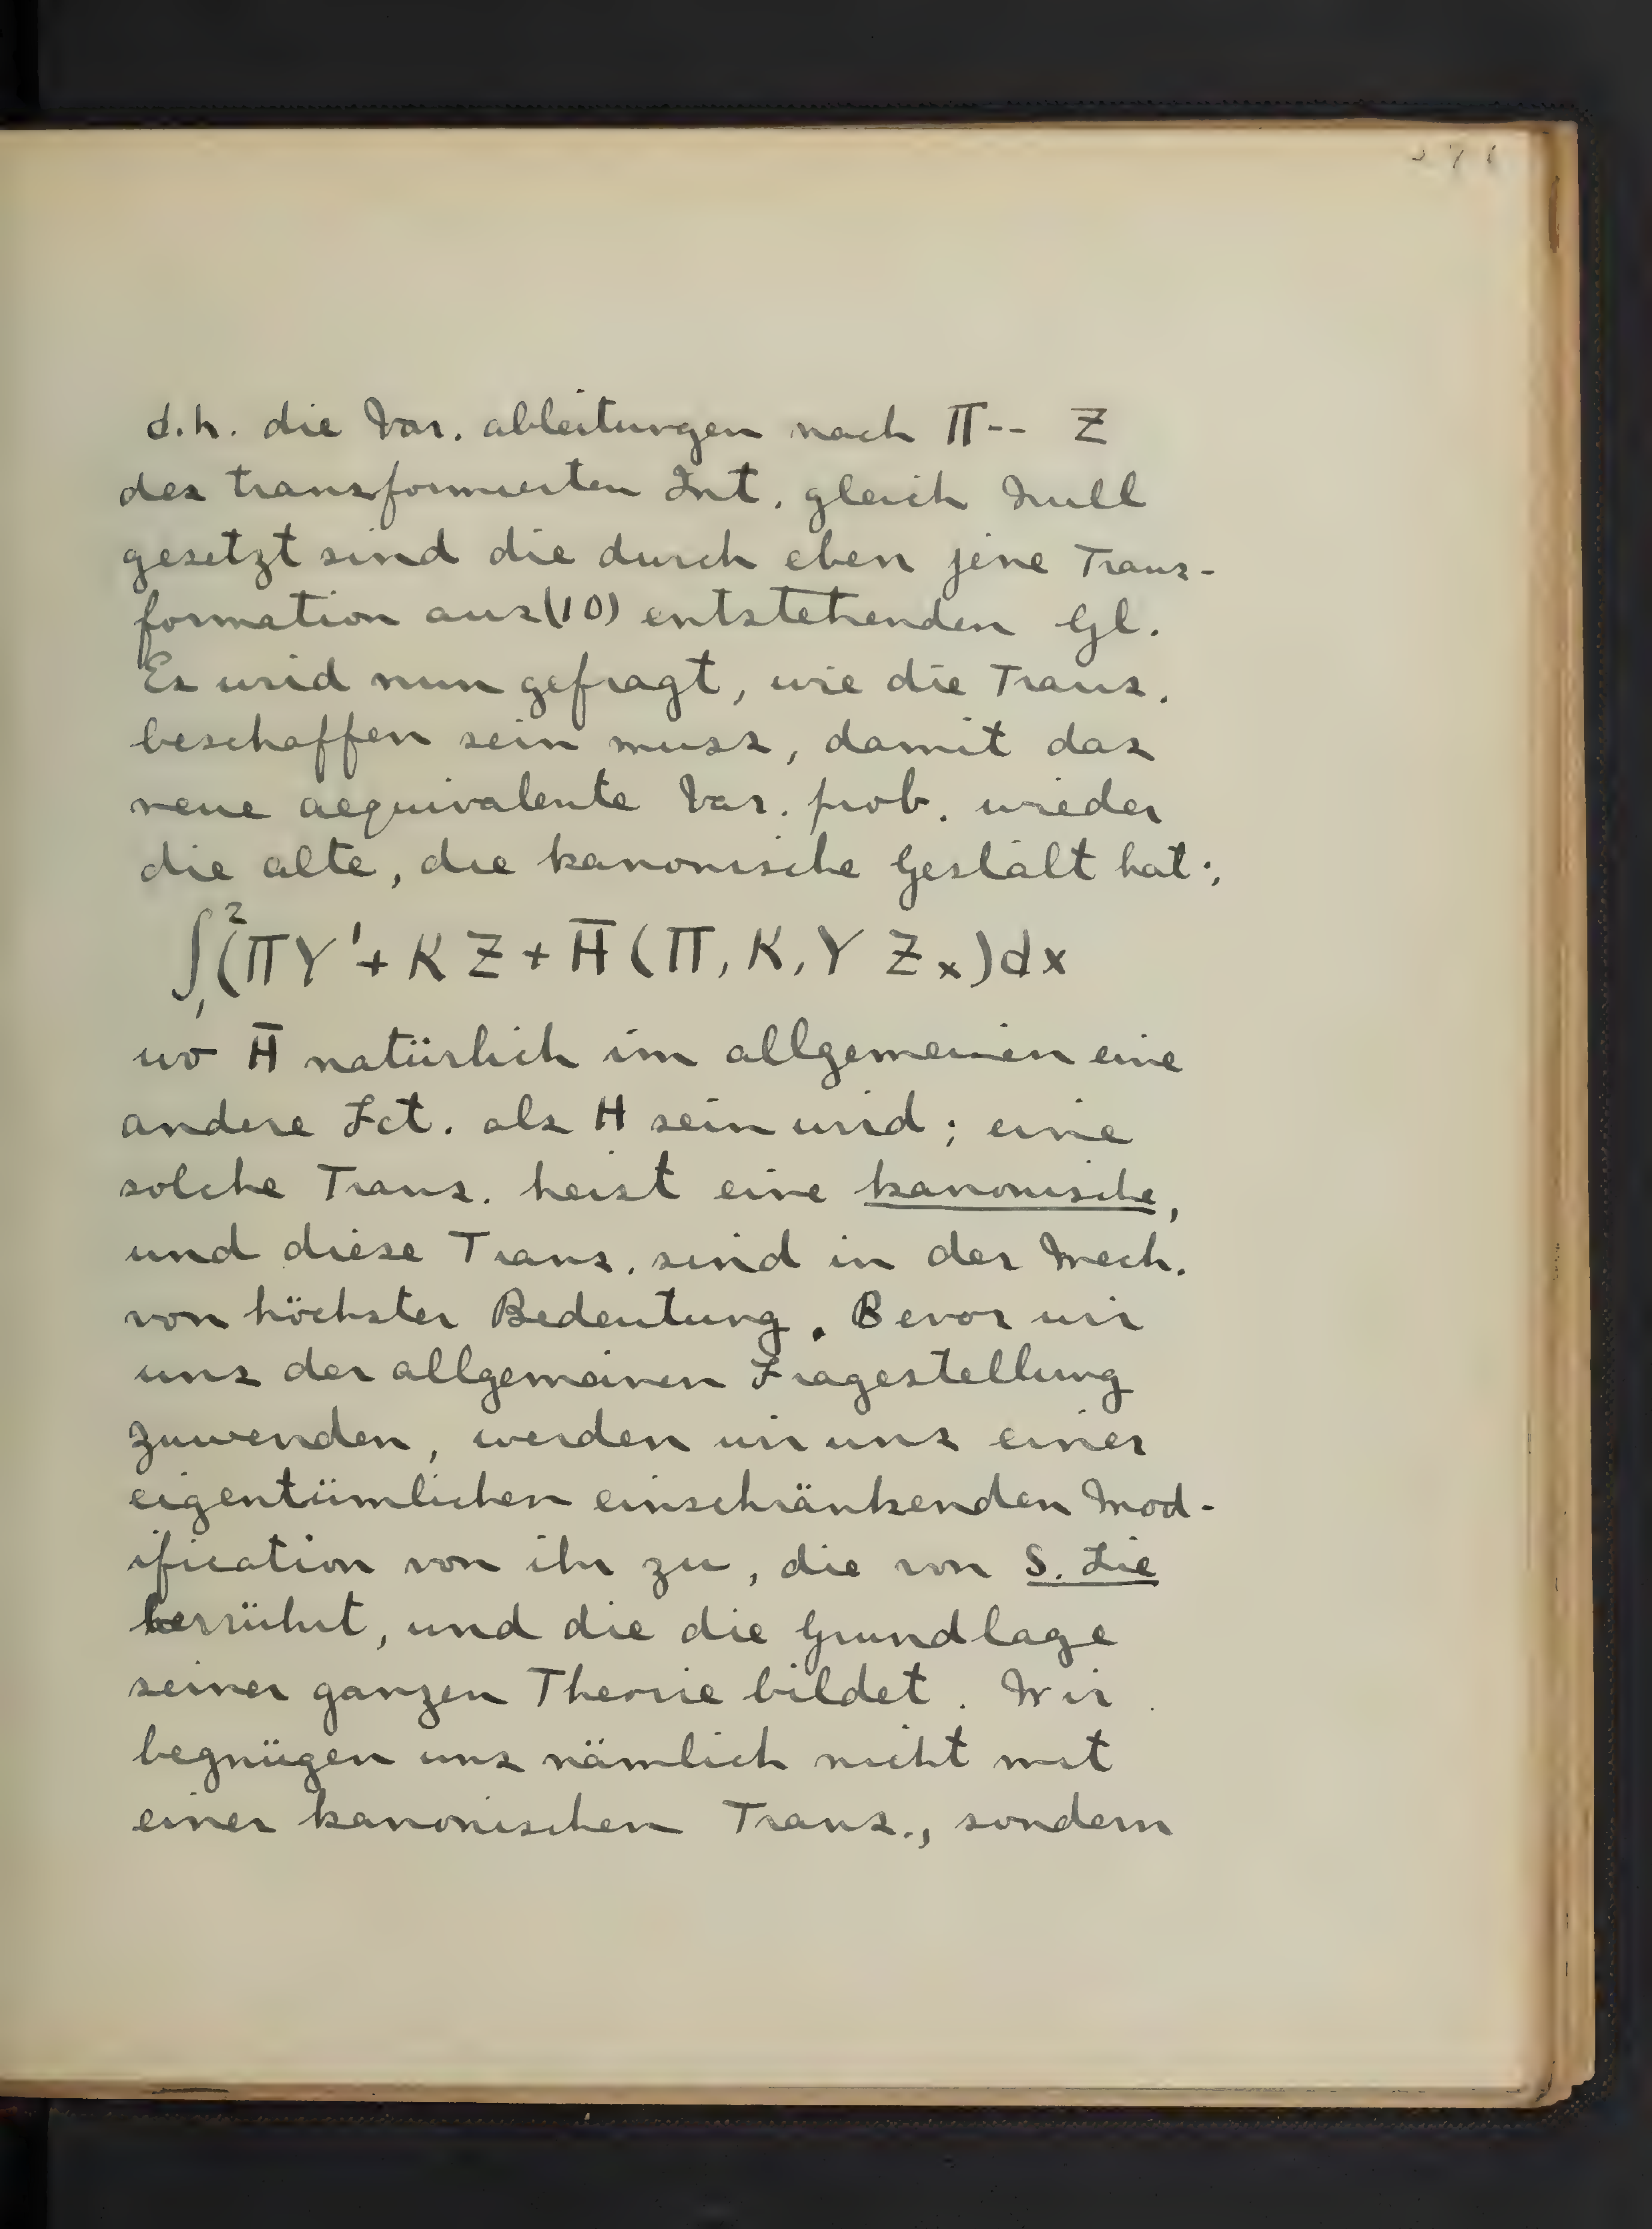 d.h. die Var. ableitungen nach Π-- Z
des transformierten Int. gleich Null
gesetzt sind die durch eben jene Trans-
formation aus (10) entstehenden Gl.
Es wird nun gefragt, wie die Trans.
beschaffen sein muss, damit das
neue aequivalente Var. prob. wieder
die alte, die kanonische Gestalt hat:,
∫₁²(ΠY'+KZ+H̅(Π,K,Y Z x)dx
wo H̅ natürlich im allgemeinen eine
andere Fct. als H sein wird; eine
solche Trans. heist eine kanonische,
und diese Trans. sind in der Mech.
von höchster Bedeutung. Bevor wir
uns der allgemeinen Fragestellung
zuwenden, werden wir uns einer
eigentümlichen einschränkenden Mod-
ification von ihr zu, die von S. Lie
herrührt, und die die Grundlage
seiner ganzen Theorie bildet. Wir
begnügen uns nämlich nicht mit
einer kanonischen Trans., sondern